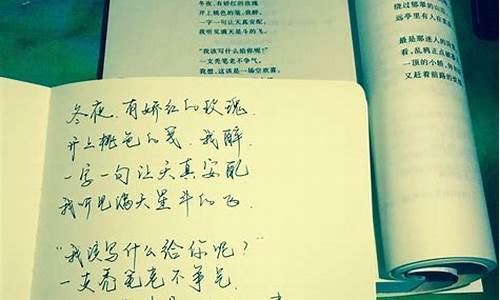 冬夜,有娇红的玫瑰
开上桃色的笺,我醉,
一字一句让天真安配,
我听见满天星斗的飞。
“我该写什么给你呢?”
一支秃笔老不争气。
我想,这该是一场空欢喜,
绕过郁翠的山
远亭里有人在
最是那迷人的
看,乱鸦正点破
一顶的小轿,
又赶着前路的
冬夜,有娇红的玫瑰,
开上桃色的笺,我醉,
一字一句让天真安配
我听见满天星斗的飞.
“我该写什么给你呢?”
一支秃笔老不争气.